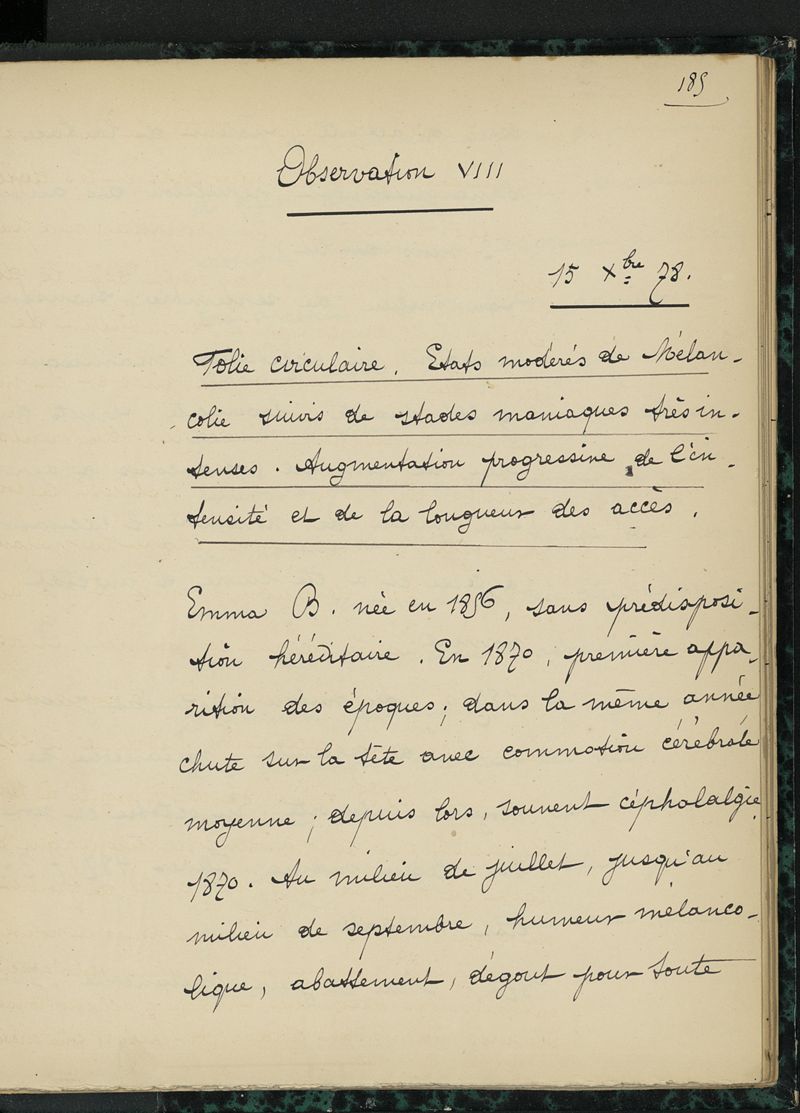 185
Observation VIII
15 Xbre 78.
Folie circulaire. Etats modérés de Mélan-
colie suivis de stades maniaques très in-
tenses. Augmentation progressive de l'in-
tensité et de la longueur des accès.
Emma B. née en 1856, sans prédisposi-
tion héréditaire. En 1870, première appa-
rition des époques; dans la même année
chute sur la tête avec commotion cérébrale
moyenne; depuis lors, souvent céphalalgie.
1870. Au milieu de juillet, jusqu'au
milieu de septembre, humeur mélanco-
lique, abattement, dégout pour toute